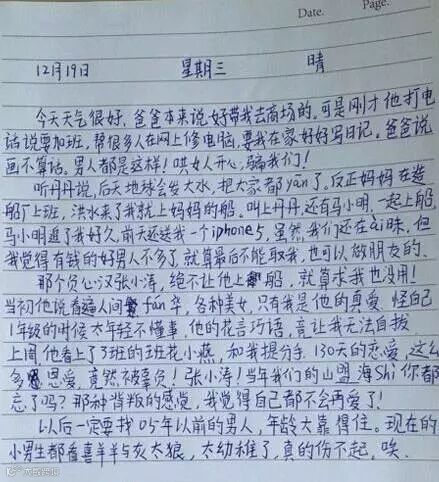 Date.
Page.
12月19日 星期三 晴
今天天气很好,爸爸本来说好带我去商场的,可是刚才他打电
话说要加班,帮很多人在网上修电脑,要我在家好好写日记,爸爸说
画不算话。男人都是这样!哄女人开心,骗我们!
听丹丹说,后天地球会发大水,把大家都yān了。反正妈妈在造
船厂上班,洪水来了我就上妈妈的船。叫上丹丹,还有马小明,一起上船,
马小明追了我好久,前天还送我一个iphone5,虽然我们还在ài昧,但
我觉得有钱的好男人不多了,就算最后不能取我,也可以做朋友的。
那个负心汉张小涛,绝不让他上船,就算求我也没用!
当初他说看遍人间fán华,各种美女,只有我是他的真爱,怪自己
1年级的时候太年轻不懂事,他的花言巧语,竟让我无法自拔
上周他看上了3班的班花小燕,和我提分手,130天的恋爱,这么
多恩爱,竟然被辜负!张小涛!当年我们的山盟海Shì你都
忘了吗?那种背叛的感觉,我觉得自己都不会再爱了!
以后一定要找05年以前的男人,年龄大靠得住。现在的
小男生都看喜羊羊与灰太狼,太幼稚了,真的伤不起,唉.